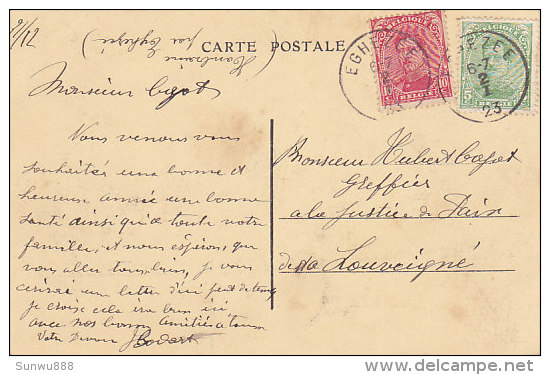 31/12
(Hambraine
par Eghezée)
CARTE POSTALE
BELGIQUE
10 10
BELGIË
EGHEZEE
23
5
EGHEZEE
6-7
2
I
23
Monsieur Cajot
Nous venons vous
souhaiter une bonne et
heureuse année une bonne
santé ainsi qu'a toute votre
famille, et nous éspérons que
vous allez tous bien, je vous
écrirai une lettre d'ici peut de temps
je crois cela ira bien ici
avec nos bonnes amitiés a tous
Votre J Bodart
Monsieur Hubert Cajot
Greffier
a la Justice de Paix
de Louveigné
Sunwu888
delcampe.net